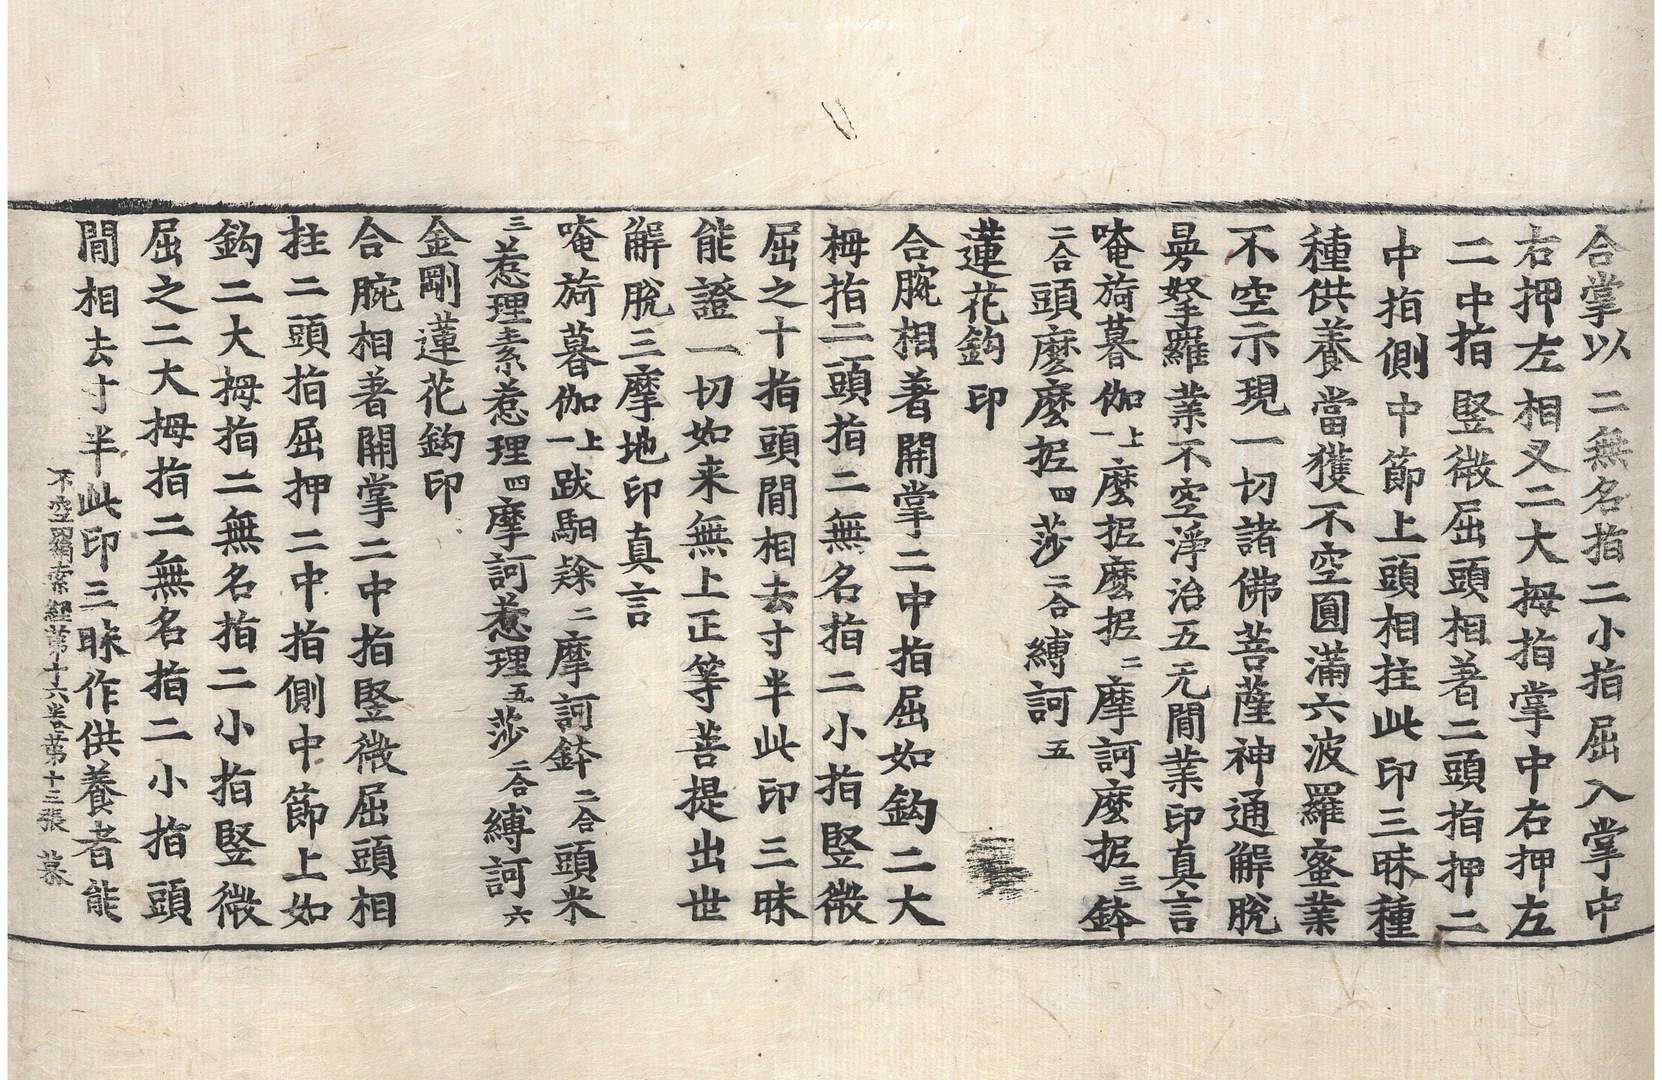 合掌以二無名指二小指屈入掌中
右押左相叉二大拇指掌中右押左
二中指竪微屈頭相著二頭指押二
中指側中節上頭相拄此印三昧種
種供養當獲不空圓滿六波羅蜜業
不空示現一切諸佛菩薩神通解脫
曼拏羅業不空淨治五无間業印真言
唵旖暮伽上一麼抳麼抳二摩訶麼抳三鉢
二合頭麼麼抳四莎二合縛訶五
蓮花鈎印
合腕相著開掌二中指屈如鈎二大
拇指二頭指二無名指二小指竪微
屈之十指頭間相去寸半此印三昧
能證一切如来無上正等菩提出世
解脫三摩地印真言
唵旖暮伽上一跋馹㘑二摩訶鉢二合頭米
三惹理素惹理四摩訶惹理五莎二合縛訶六
金剛蓮花鈎印
合腕相著開掌二中指竪微屈頭相
拄二頭指屈押二中指側中節上如
鈎二大拇指二無名指二小指竪微
屈之二大拇指二無名指二小指頭
間相去寸半此印三昧作供養者能
不空羂索經第十六卷第十三張 慕